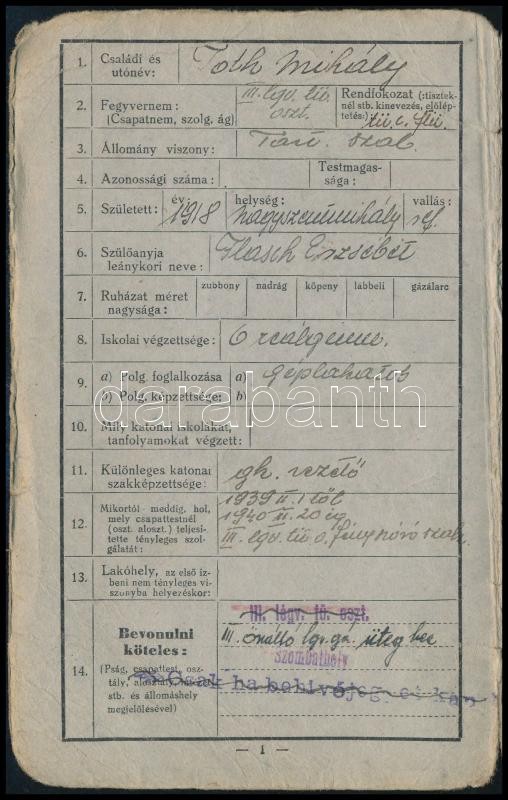 1. Családi és utónév: Tóth Mihály
2. Fegyvernem: (Csapatnem, szolg. ág) III. lgv. tü. oszt. Rendfokozat (:tisztek-
nél stb. kinevezés, előlép-
tetés:) tü. c.
3. Állomány viszony: Tart. szab.
4. Azonossági száma: Testmagas-
sága:
5. Született: év: 1918 helység: Nagyszentmihály vallás: ref.
6. Szülőanyja
leánykori neve: Flasch Erzsébet
7. Ruházat méret
nagysága: zubbony nadrág köpeny lábbeli gázálarc
8. Iskolai végzettsége: 6 reálgimn.
9. a) Polg. foglalkozása a) géplakatos
b) Polg. képzettsége: b)
darabanth
10. Mily katonai iskolákat,
tanfolyamokat végzett:
11. Különleges katonai
szakképzettsége: gk. vezető
12. Mikortól - meddig, hol,
mely csapattestnél
(oszt. aloszt.) teljesi-
tette tényleges szol-
gálatát:
1939 II. 1 től
1940 II. 20 ig
III. lgv. tü. o. fényszóró szak.
13. Lakóhely, az első íz-
beni nem tényleges vi-
szonyba helyezéskor:
14. Bevonulni
köteles:
(Pság, csapattest, osz-
tály, alosztály, intézet
stb. és állomáshely
megjelölésével)
III. légv. tü. oszt.
III. önálló lgv. gá. üteg hez
Szombathely
Csak ha behivójegyet kap
— 1 —